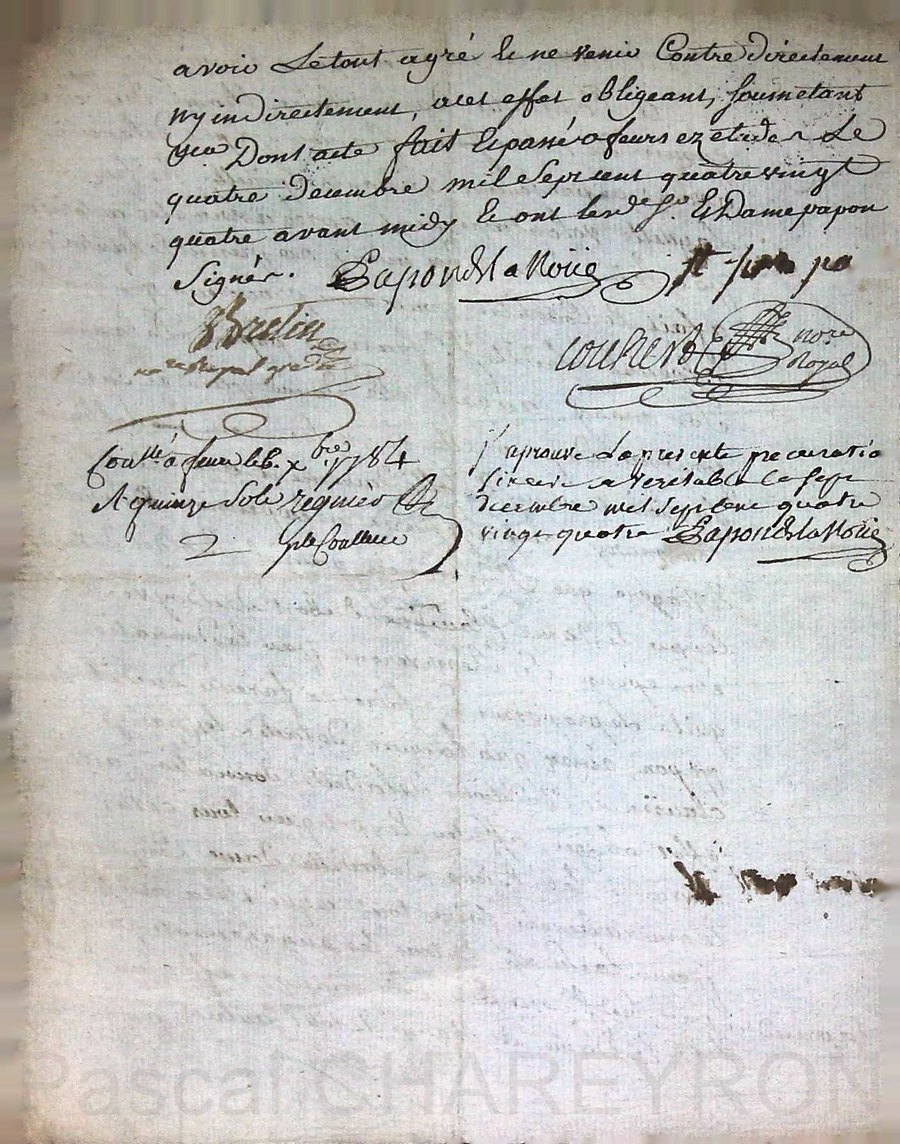 avoir Le tout agré Et ne venir Contre directement
ny indirectement, a cet effet obligeant, soumetant
Dont acte fait Et passé a feurs ez etude Le
quatre decembre mil sept cent quatre vingt
quatre avant midy Et ont Lesd. Sr. Et Dame papon
Signés. PaponDlaNoüe
Bretin
nore Royal
nore Royal
Conllé a feurs le 6. xbre 1784
R quinze Sols
J'aprouve La presente procuratio
sincere et veritable Le sept
decembre mil sept cent quatre
vingt quatre PaponDlaNoüe
Pascal CHAREYRON